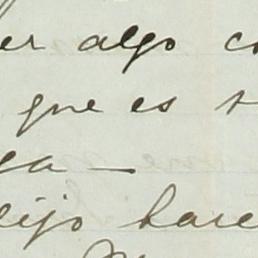 er algo co
que es
ga —
lijo hace